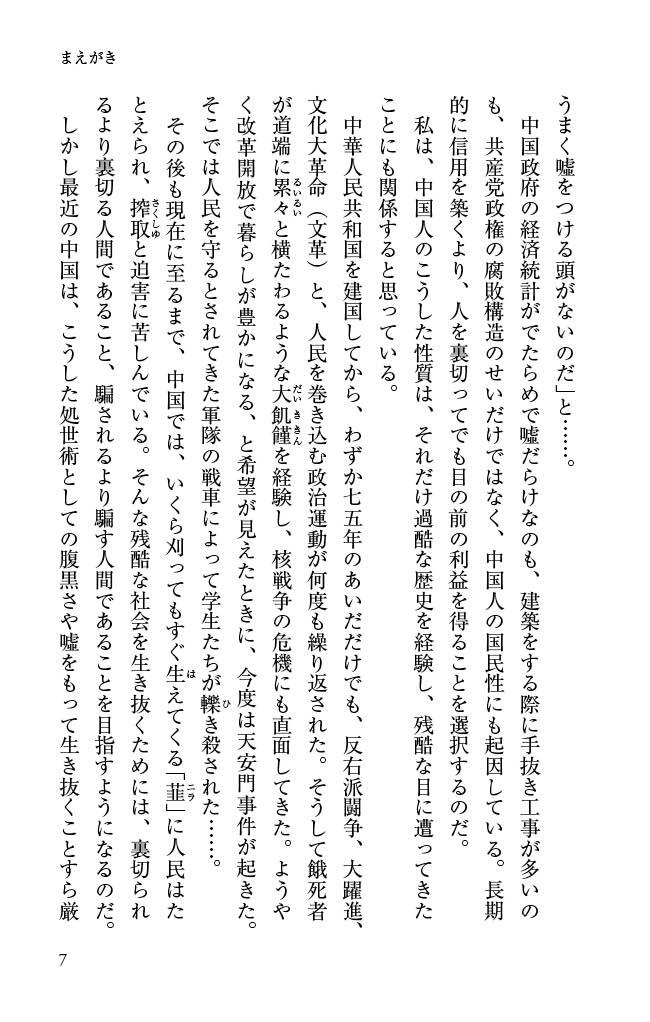 まえがき
うまく嘘をつける頭がないのだ」と……。
中国政府の経済統計がでたらめで嘘だらけなのも、建築をする際に手抜き工事が多いの
も、共産党政権の腐敗構造のせいだけではなく、中国人の国民性にも起因している。長期
的に信用を築くより、人を裏切ってでも目の前の利益を得ることを選択するのだ。
私は、中国人のこうした性質は、それだけ過酷な歴史を経験し、残酷な目に遭ってきた
ことにも関係すると思っている。
中華人民共和国を建国してから、わずか七五年のあいだだけでも、反右派闘争、大躍進、
文化大革命（文革）と、人民を巻き込む政治運動が何度も繰り返された。そうして餓死者
が道端に累々と横たわるような大飢饉を経験し、核戦争の危機にも直面してきた。ようや
く改革開放で暮らしが豊かになる、と希望が見えたときに、今度は天安門事件が起きた。
そこでは人民を守るとされてきた軍隊の戦車によって学生たちが轢き殺された……。
その後も現在に至るまで、中国では、いくら刈ってもすぐ生えてくる「韮」に人民はた
とえられ、搾取と迫害に苦しんでいる。そんな残酷な社会を生き抜くためには、裏切られ
るより裏切る人間であること、騙されるより騙す人間であることを目指すようになるのだ。
しかし最近の中国は、こうした処世術としての腹黒さや嘘をもって生き抜くことすら厳
7